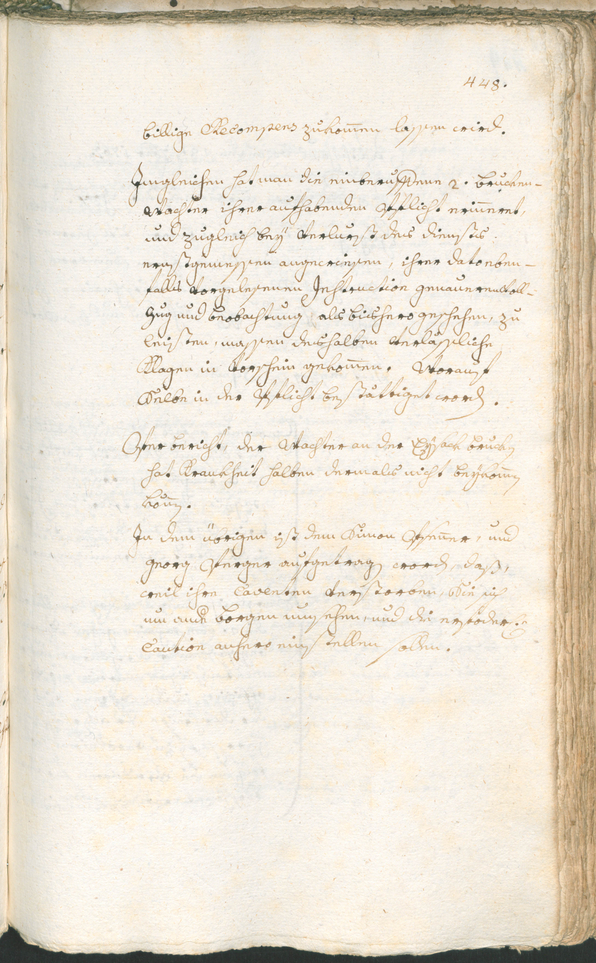 448.
billige Recompens zukommen lassen wird.
Ingleichen hat man die einberuffene 2. Brucken-
wachter ihrer aufhabenden Pflicht erinneret,
und zugleich bey Verlurst des diensts
ernstgemessen angewisen, ihrer dato eben-
falls vorgelesenen Instruction genaueren Voll-
zug und beobachtung, als bishero geschehen, zu
leisten, massen desshalben verlässliche
Klagen in Vorschein gekommen. Worauf
Selbe in der Pflicht bestättiget word.
der Wachter an der Brucken
hat Krankheit halben dermals nicht beykomen
könn.
In dem übrigen ist dem Simon und
Georg aufgetragen word, dass,
weil ihre Caventen verstorben, Sie sich
um and borgen umsehen, und die erfoderl.
Caution anhero einstellen sollen.